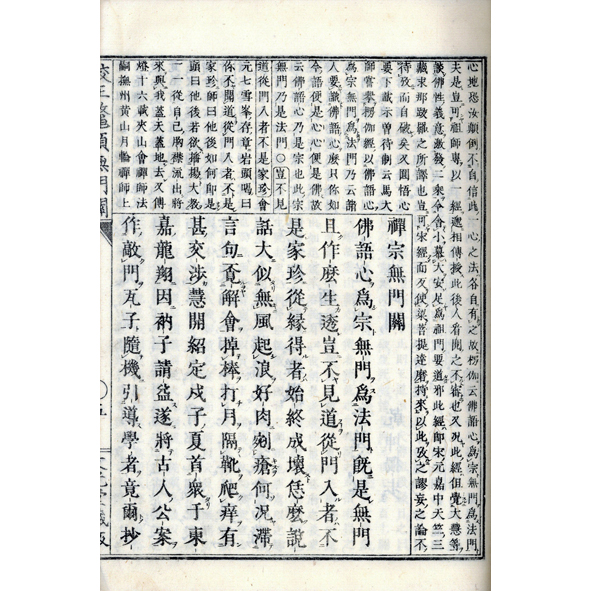 心地恐汝顛倒不自信此一心之法各自有之故楞伽云佛語心爲宗無門爲法門
夫是豈可祖師專以一經遞相傳授此後人看閲之不審也又況此經但覺大慧等
敷佛性義意激發二乘令舍小慕大安是爲禪門要道邪此經即宋元嘉中天竺三
藏求那跋羅之所譯也豈可宋經而反使菩提達磨持來以此攷之謬妄之論不
待攻而自破矣又圓悟心
要下示曽待制云馬大
師嘗擧楞伽經以佛語心
爲宗無門爲法門乃云諸
人要識佛語心麼只你如
今語便是心心便是佛故
云佛語心乃是宗也此宗
無門乃是法門〇豈不見
道從門入者不是家珍會
元七雪峯存章岩頭喝曰
你不聞道從門入者不是
家珍師曰他後如何即是
頭曰他後若欲播揚大教
一一從自己胸襟流出將
來與我蓋天蓋地去又傳
燈十六載夾山會禪師法
嗣撫州黄山月輪禪師上
禪宗無門關
佛語心爲宗無門爲法門既是無門
且作麼生透豈不見道從門入者不
是家珍從緣得者始終成壞恁麼說
話大似無風起浪好肉剜瘡何況滯
言句覔解會掉棒打月隔靴爬痒有
甚交渉慧開紹定戊子夏首衆于東
嘉龍翔因衲子請益遂將古人公案
作敲門瓦子隨機引導學者竟爾抄